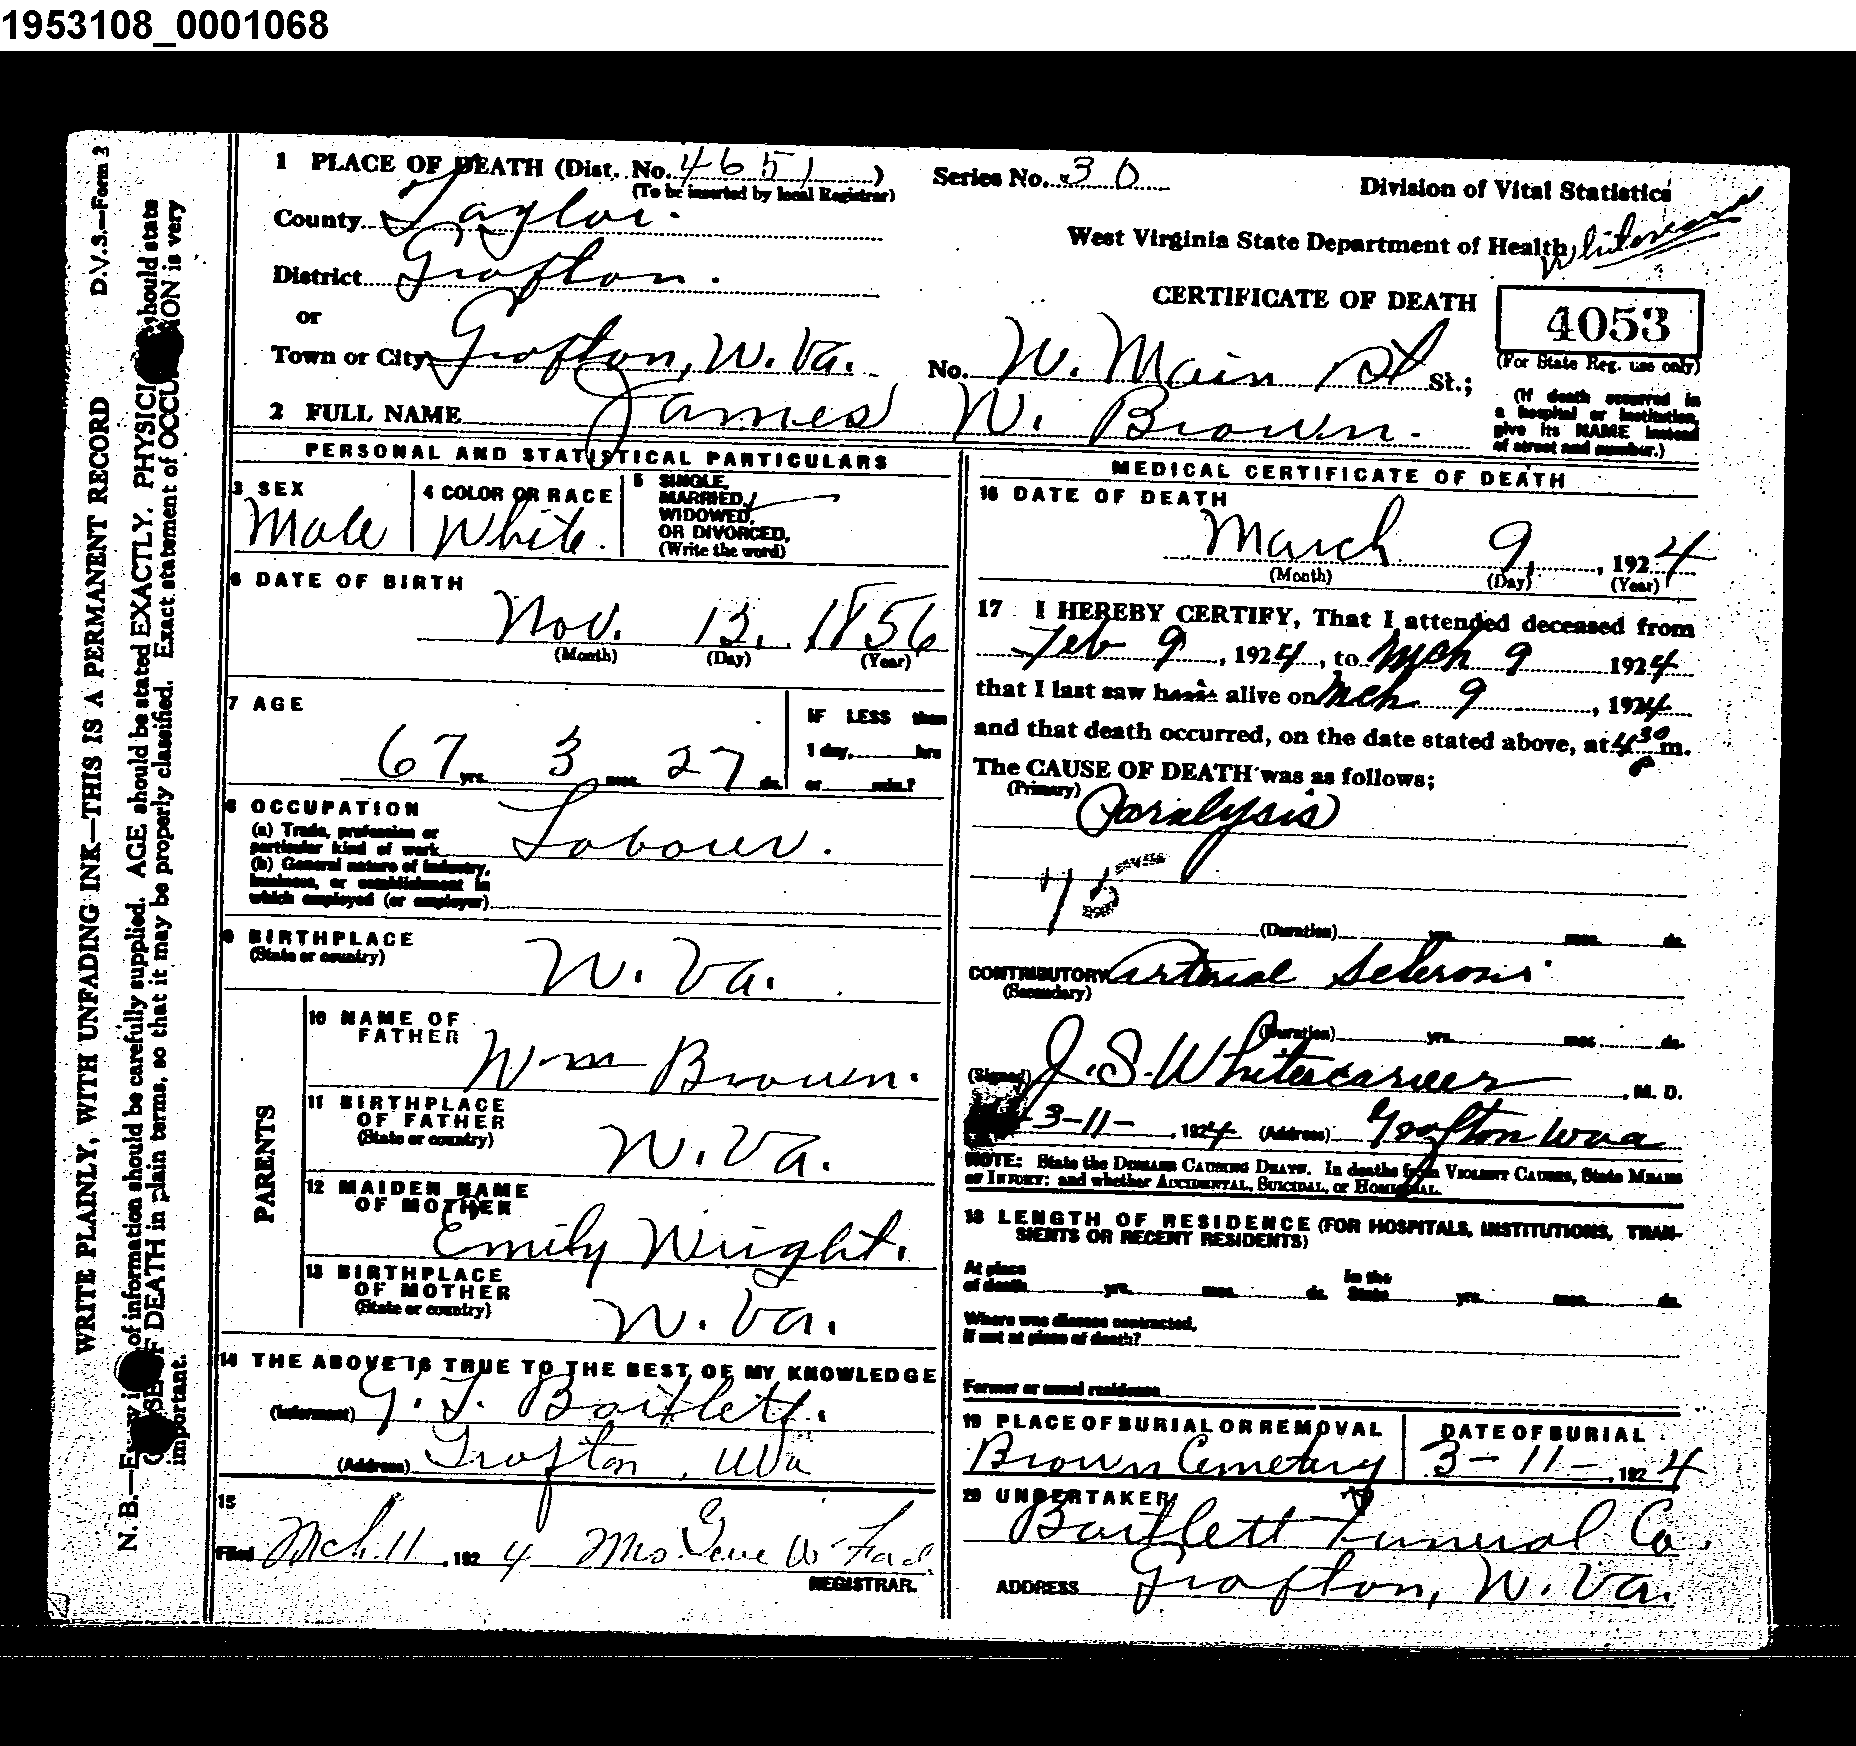 1953108_0001068
D.V.S.—Form 3
WRITE PLAINLY, WITH UNFADING INK—THIS IS A PERMANENT RECORD
N. B.—Every i of information should be carefully supplied. AGE should be stated EXACTLY. PHYSICI should state
SE OF DEATH in plain terms, so that it may be properly classified. Exact statement of OCCU ION is very
important.
1 PLACE OF DEATH (Dist. No. 4651)
(To be inserted by local Registrar)
Series No. 30
Division of Vital Statistics
County Taylor.
West Virginia State Department of Health
District Grafton.
CERTIFICATE OF DEATH
4053
(For State Reg. use only)
or
Town or City Grafton, W. Va. No. W. Main St St.;
(If death occurred in
a hospital or institution,
give its NAME instead
of street and number.)
2 FULL NAME James W. Brown.
PERSONAL AND STATISTICAL PARTICULARS
3 SEX
Male
4 COLOR OR RACE
White.
5 SINGLE,
MARRIED,
WIDOWED,
OR DIVORCED,
(Write the word)
6 DATE OF BIRTH
Nov. 13, 1856
(Month) (Day) (Year)
7 AGE
67 yrs. 3 mos. 27 ds.
IF LESS than
1 day, hrs
or min.?
8 OCCUPATION
(a) Trade, profession or
particular kind of work Labour.
(b) General nature of industry,
business, or establishment in
which employed (or employer)
9 BIRTHPLACE
(State or country)
W. Va.
PARENTS
10 NAME OF
FATHER
Wm Brown.
11 BIRTHPLACE
OF FATHER
(State or country)
W. Va.
12 MAIDEN NAME
OF MOTHER
Emily Wright.
13 BIRTHPLACE
OF MOTHER
(State or country)
W. Va.
14 THE ABOVE IS TRUE TO THE BEST OF MY KNOWLEDGE
(Informant) G. T. Bartlett.
(Address) Grafton, WVa
15
Filed Mch. 11, 1924
REGISTRAR.
MEDICAL CERTIFICATE OF DEATH
16 DATE OF DEATH
March 9, 1924
(Month) (Day) (Year)
17 I HEREBY CERTIFY, That I attended deceased from
Feb 9, 1924, to Mch 9 1924
that I last saw h alive on Mch 9, 1924
and that death occurred, on the date stated above, at 4 30 m.
P
The CAUSE OF DEATH was as follows;
(Primary)
Paralysis
75
(Duration) yrs. mos. ds.
CONTRIBUTORY Arterial Sclerosis
(Secondary)
(Duration) yrs. mos. ds.
(Signed) J. S. Whitescarver, M. D.
3-11-, 1924 (Address) Grafton Wva
NOTE: State the DISEASE CAUSING DEATH. In deaths from VIOLENT CAUSES, State MEANS
OF INJURY; and whether ACCIDENTAL, SUICIDAL, or HOMICIDAL.
18 LENGTH OF RESIDENCE (FOR HOSPITALS, INSTITUTIONS, TRAN-
SIENTS OR RECENT RESIDENTS)
At place
of death yrs. mos. ds.
In the
State yrs. mos. ds.
Where was disease contracted,
if not at place of death?
Former or usual residence
19 PLACE OF BURIAL OR REMOVAL
Brown Cemetery
DATE OF BURIAL
3-11-, 1924
20 UNDERTAKER
Bartlett Funeral Co.
ADDRESS Grafton, W. Va.